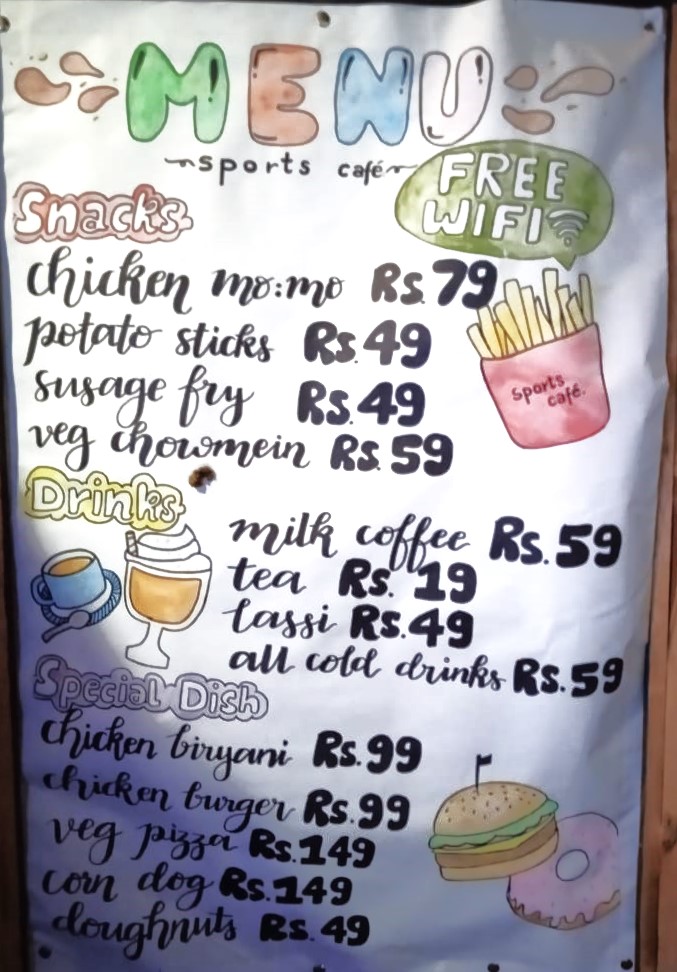 MENU
sports café
FREE
WIFI
Snacks
chicken mo:mo Rs.79
potato sticks Rs.49
susage fry Rs.49
veg chowmein Rs.59
sports
café.
Drinks
milk coffee Rs.59
tea Rs.19
lassi Rs.49
all cold drinks Rs.59
Special Dish
chicken biryani Rs.99
chicken burger Rs.99
veg pizza Rs.149
corn dog Rs.149
doughnuts Rs.49